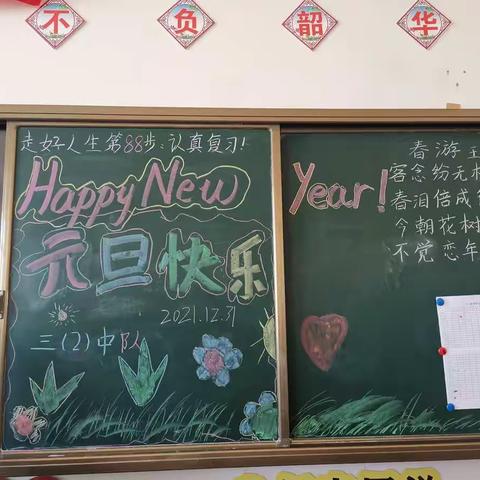 不负韶华
走好人生第88步：认真复习！
Happy New Year!
元旦快乐
2021.12.31
三（2）中队
春游
客念纷无
春泪倍成
今朝花树
不觉恋年